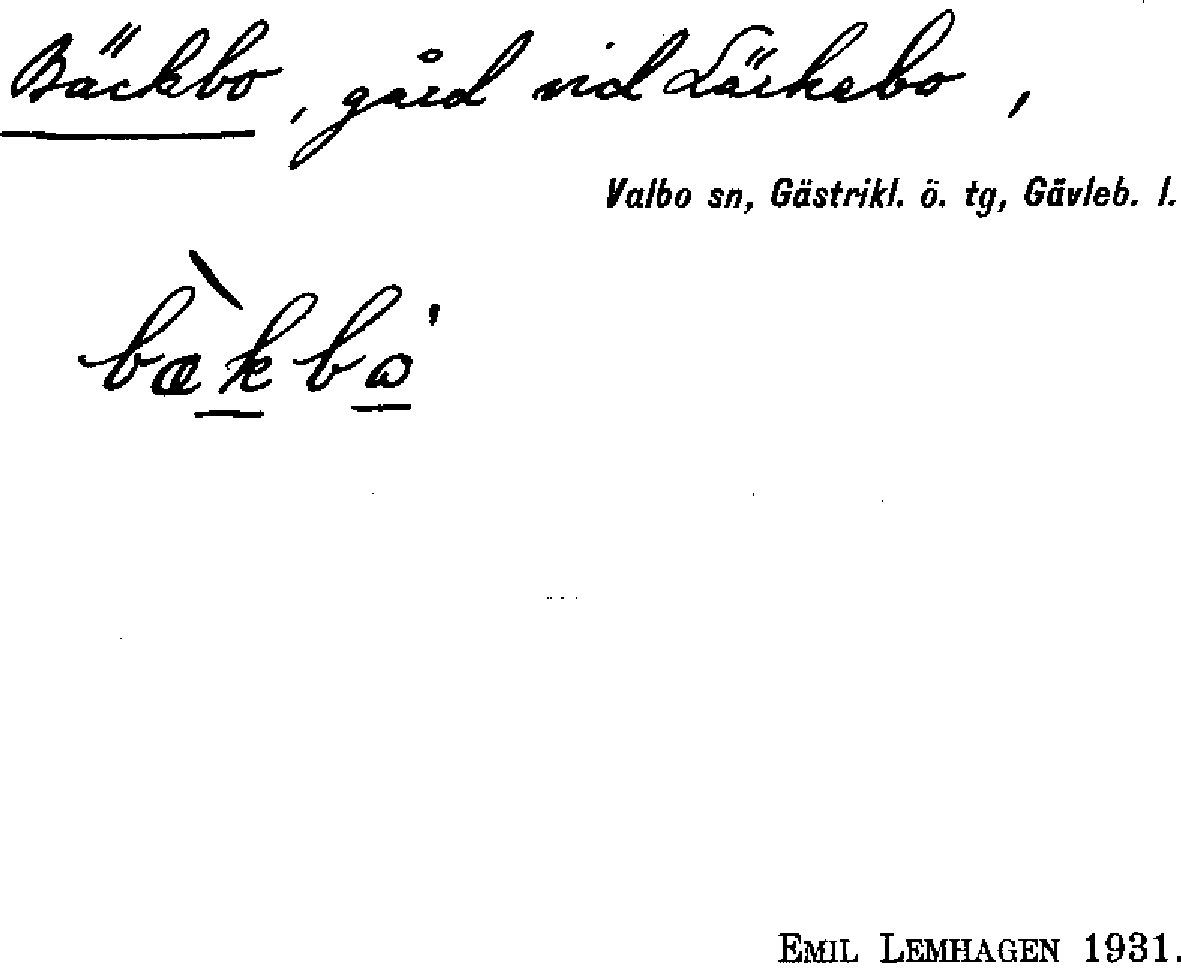 Bäckbo, gård vid Lärkebo,
Valbo sn, Gästrikl. ö. tg, Gävleb. l.
bæ̀kbɷ'
EMIL LEMHAGEN 1931.